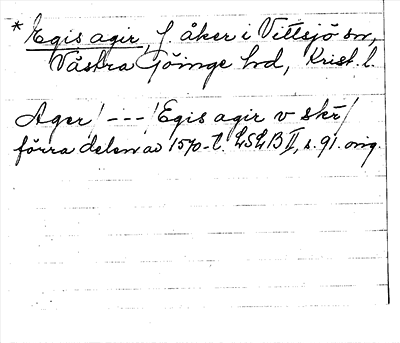 * Egis agir, f åker i Vittsjö sn,
Västra Göinge hd, Krist. l.
Ager / --- / Egis agir v skr /
förra delen av 1570-t. LSLB II, s. 91. orig.